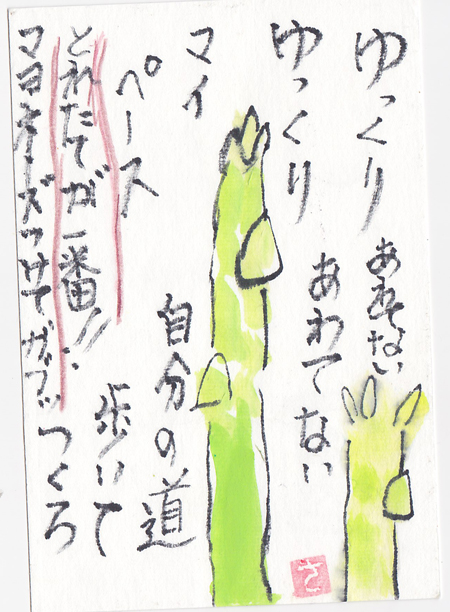 ゆっくり
あせらない
ゆっくり
あわてない
マイ
ペース
自分の道
歩いて
つくろ
とれたてが一番!!
マヨネーズつけてガブッ
さ